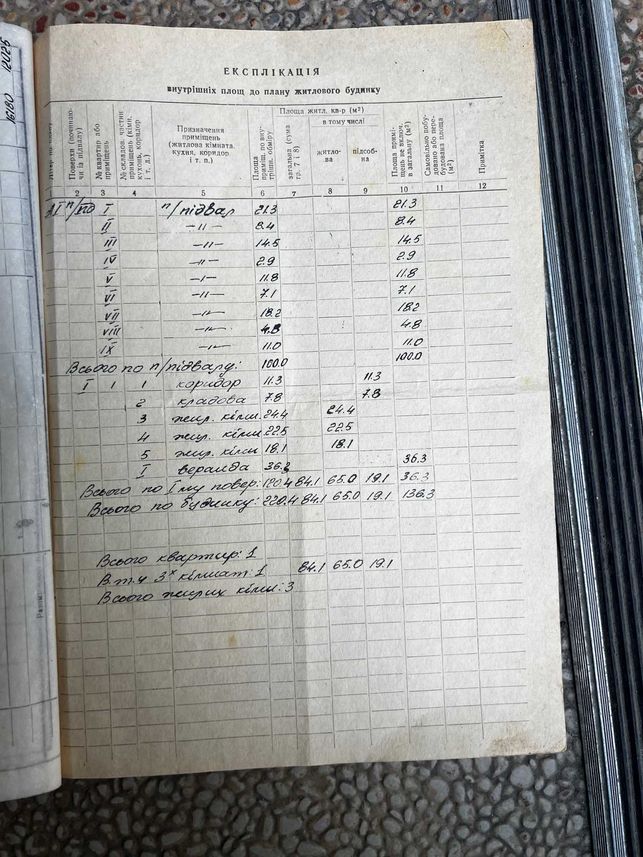 ЕКСПЛІКАЦІЯ
внутрішніх площ до плану житлового будинку
Поверхи (починаючи із підвалу)
№ квартир або приміщень
№ складов. частин приміщень (кімн. кухонь, коридор і т. д.)
Призначення приміщень (житлова кімната, кухня, коридор і т. п.)
Площа приміщ. по внутрішн. обміру
Площа житл. кв-р (м²)
загальна (сума гр. 7 і 8)
в тому числі
житлова
підсобна
Площа приміщень не включ. в загальну (м²)
Самовільно побудовано або переобудована площа (м²)
Примітка
2 3 4 5 6 7 8 9 10 11 12
п/під I п/підвал 21.3 21.3
II —"— 8.4 8.4
III —"— 14.5 14.5
IV —"— 2.9 2.9
V —"— 11.8 11.8
VI —"— 7.1 7.1
VII —"— 18.2 18.2
VIII —"— 4.8 4.8
IX —"— 11.0 11.0
Всього по п/підвалу: 100.0 100.0
I 1 1 коридор 11.3 11.3
2 кладова 7.8 7.8
3 жил. кімн. 24.4 24.4
4 жил. кімн. 22.5 22.5
5 жил. кімн 18.1 18.1
I веранда 36.3 36.3
Всього по I му повер: 120.4 84.1 65.0 19.1 36.3
Всього по будинку: 220.4 84.1 65.0 19.1 136.3
Всього квартир: 1
В.т.ч 3х кімнат: 1 84.1 65.0 19.1
Всього жилих кімн: 3